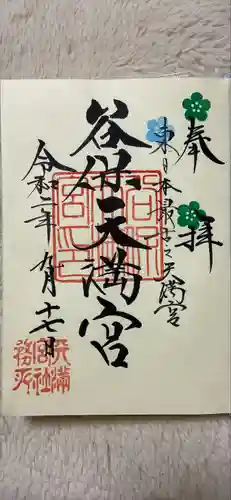 奉拝
東日本最古之天満宮
谷保天満宮
令和二年九月十七日
天満
宮社
務所